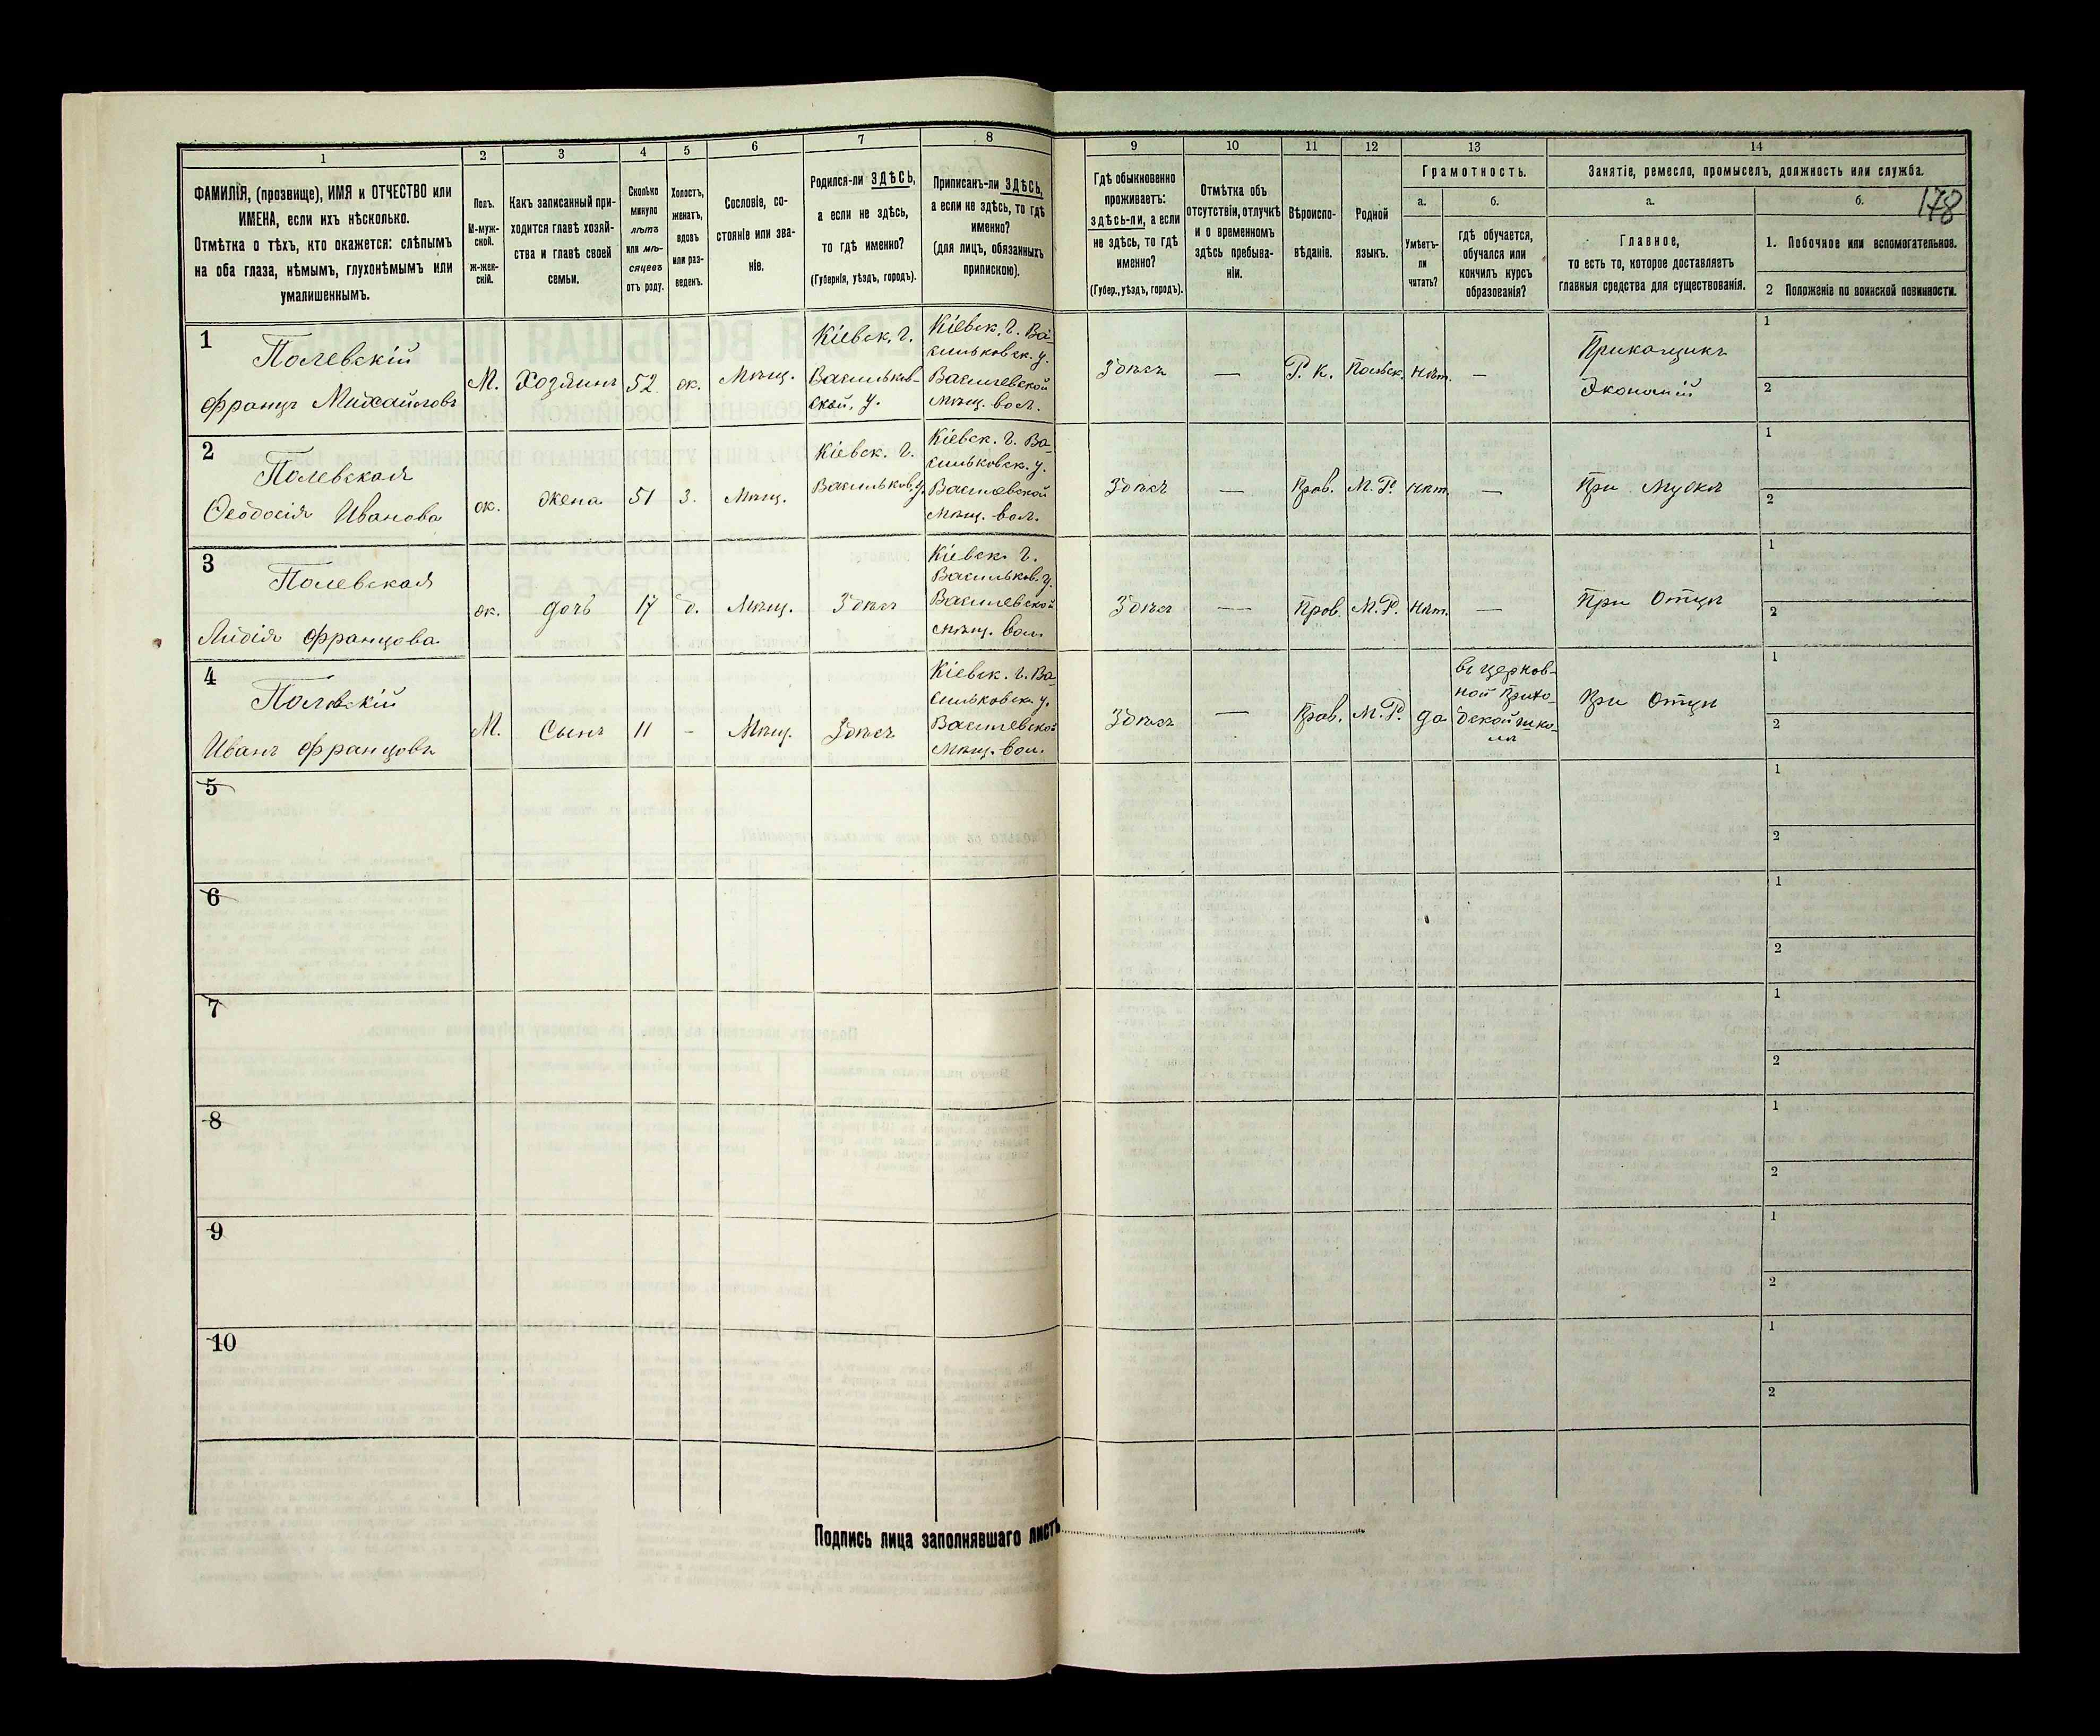 178
1
2
3
4
5
6
7
8
9
10
11
12
13
14
ФАМИЛІЯ, (прозвище), ИМЯ и ОТЧЕСТВО или
ИМЕНА, если ихъ нѣсколько.
Отмѣтка о тѣхъ, кто окажется: слѣпымъ
на оба глаза, нѣмымъ, глухонѣмымъ или
умалишеннымъ.
Полъ.
М-муж-
ской.
Ж-жен-
скій.
Какъ записанный при-
ходится главѣ хозяй-
ства и главѣ своей
семьи.
Сколько
минуло
лѣтъ
или мѣ-
сяцевъ
отъ роду.
Холостъ,
женатъ,
вдовъ
или раз-
веденъ.
Сословіе, со-
стояніе или зва-
ніе.
Родился-ли ЗДѢСЬ,
а если не здѣсь,
то гдѣ именно?
(Губернія, уѣздъ, городъ).
Приписанъ-ли ЗДѢСЬ,
а если не здѣсь, то гдѣ
именно?
(для лицъ, обязанныхъ
припискою).
Гдѣ обыкновенно
проживаетъ:
здѣсь-ли, а если
не здѣсь, то гдѣ
именно?
(Губер., уѣздъ, городъ).
Отмѣтка объ
отсутствіи, отлучкѣ
и о временномъ
здѣсь пребыва-
ніи.
Вѣроиспо-
вѣданіе.
Родной
языкъ.
Грамотность.
а.
Умѣетъ-
ли
читать?
б.
гдѣ обучается,
обучался или
кончилъ курсъ
образованія?
Занятіе, ремесло, промыселъ, должность или служба.
а.
Главное,
то есть то, которое доставляетъ
главныя средства для существованія.
б.
1. Побочное или вспомогательное.
2 Положеніе по воинской повинности.
1
Полевскій
Францъ Михайловъ
М.
Хозяинъ
52
ж.
Мѣщ.
Кіевск. г.
Васильков-
ской, у.
Кіевск. г. Ва-
сильковск. у.
Василевской
мѣщ. вол.
Здѣсь
—
Р. К.
Польск.
нѣт.
—
Прикащикъ
Экономій
1
2
2
Полевская
Ѳеодосія Иванова
ж.
жена
51
з.
Мѣщ.
Кіевск. г.
Васильков. у.
Кіевск. г. Ва-
сильковск. у.
Василевской
мѣщ. вол.
Здѣсь
—
Прав.
М. Р.
нѣт.
—
При мужѣ
1
2
3
Полевская
Лидія Францова
ж.
дочь
17
д.
Мѣщ.
Здѣсь
Кіевск. г.
Васильков. у.
Василевской
мѣщ. вол.
Здѣсь
—
Прав.
М. Р.
нѣт.
—
При отцѣ
1
2
4
Полевскій
Иванъ Францовъ
М.
Сынъ
11
-
Мѣщ.
Здѣсь
Кіевск. г. Ва-
сильковск. у.
Василевской
мѣщ. вол.
Здѣсь
—
Прав.
М. Р.
да
въ церков-
ной прихо-
дской шко-
лѣ
При отцѣ
1
2
5
1
2
6
1
2
7
1
2
8
1
2
9
1
2
10
1
2
Подпись лица заполнявшаго листъ